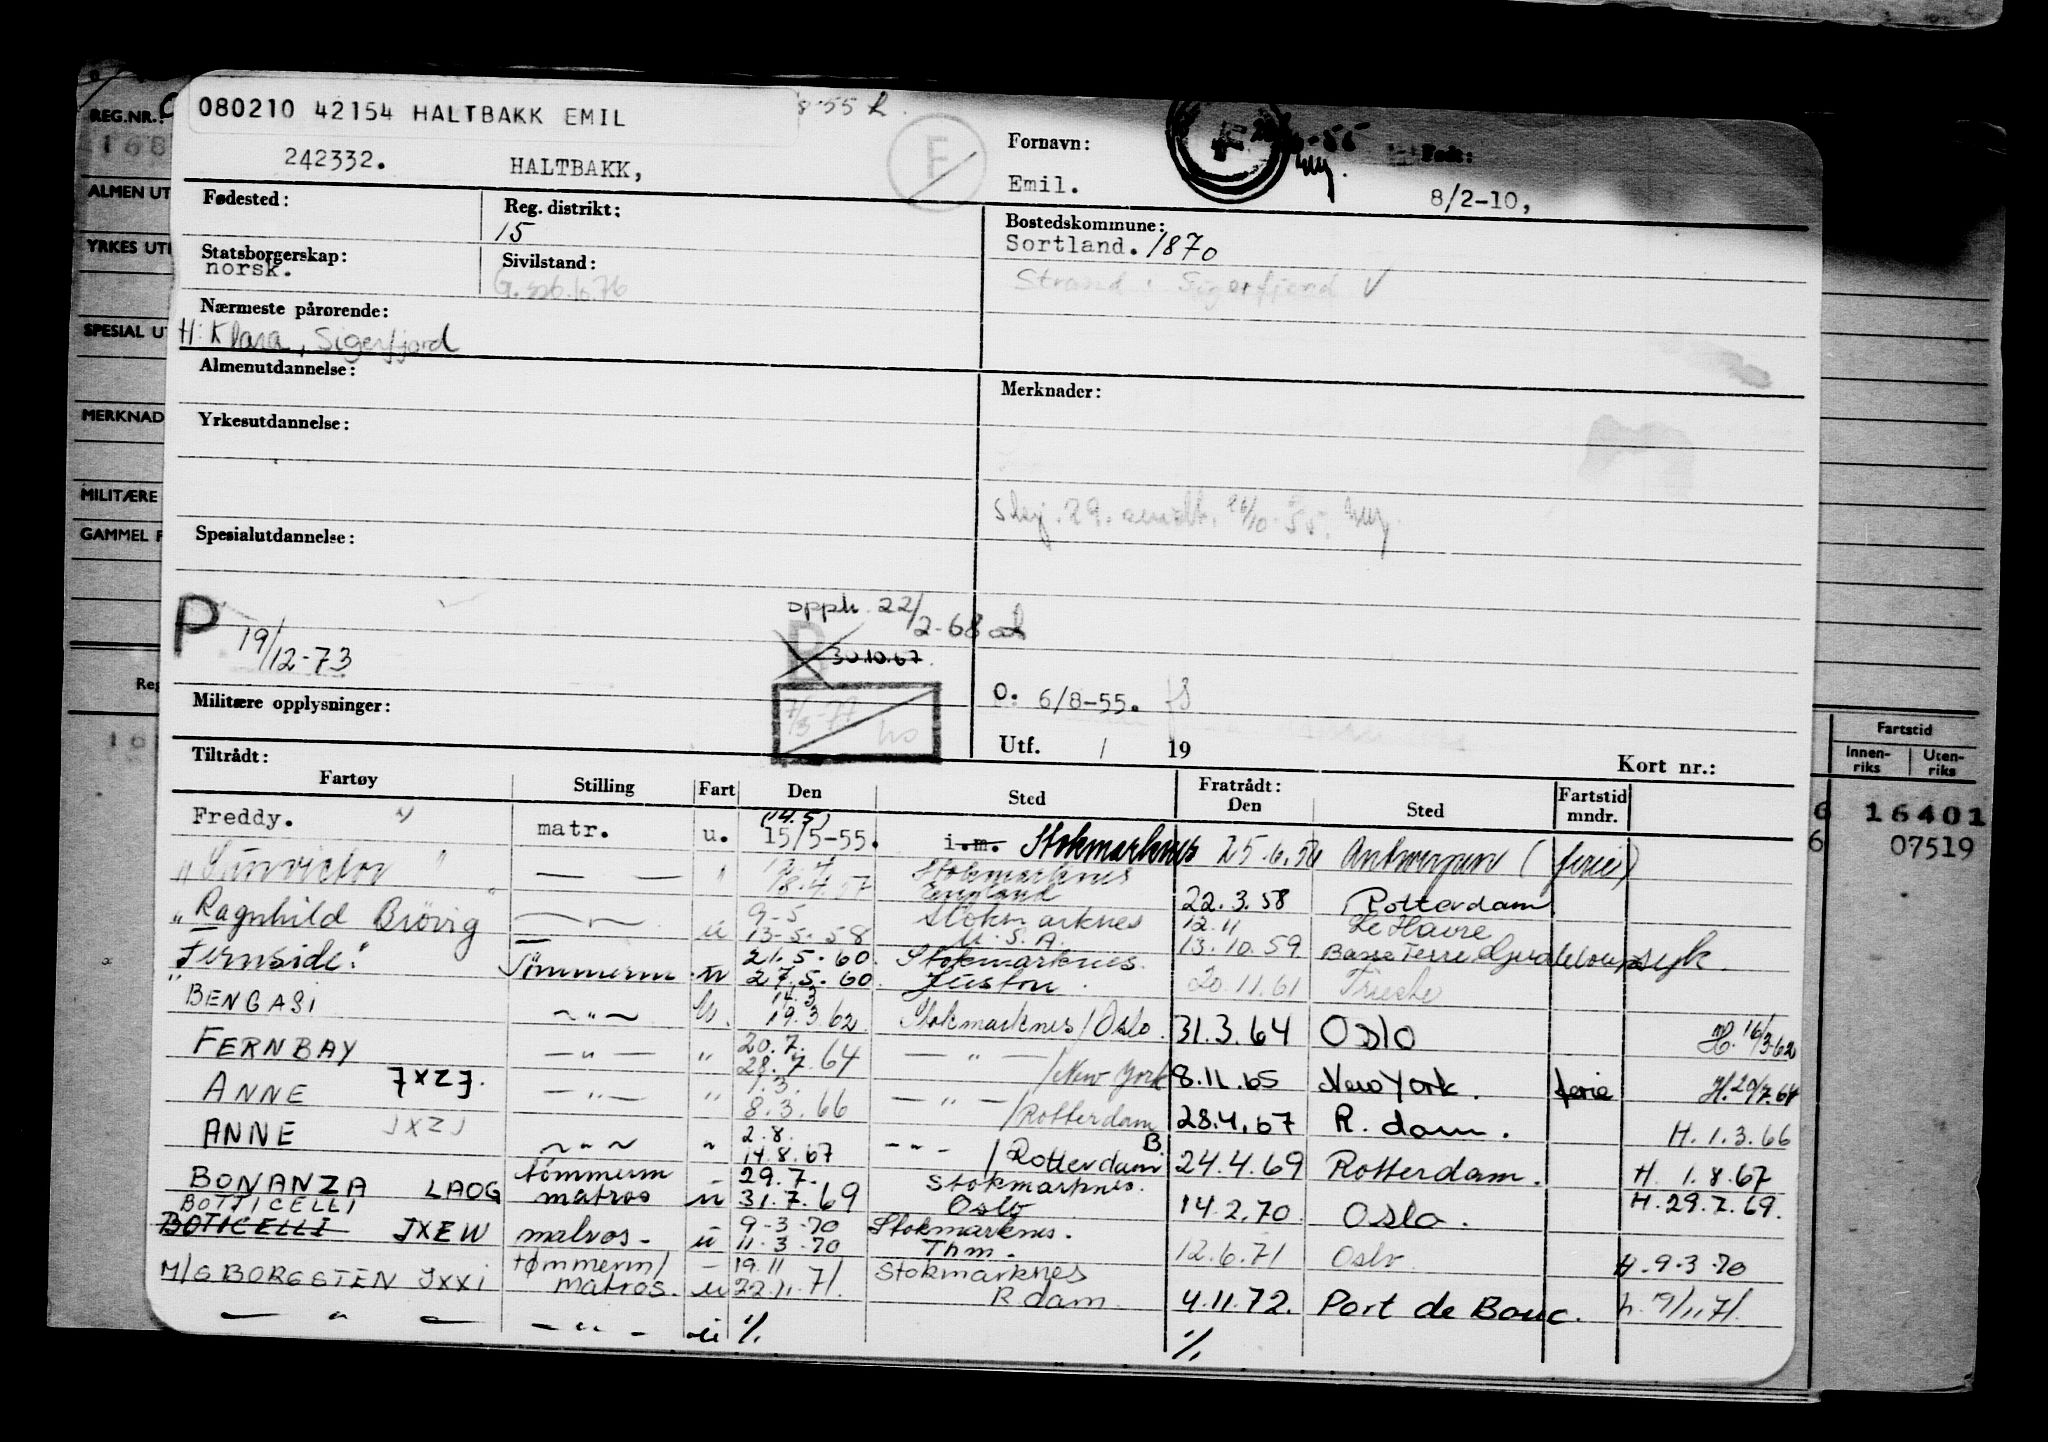 REG.NR.:
ALMEN UT
YRKES UT
SPESIAL UT
MERKNAD
MILITÆRE
GAMMEL F
080210 42154 HALTBAKK EMIL
242332. HALTBAKK,
F
Fornavn:
Emil.
Født:
8/2-10,
Fødested:
Reg. distrikt:
15
Bostedskommune:
Sortland. 1870
Strand, Sigerfjord V
Statsborgerskap:
norsk.
Sivilstand:
Nærmeste pårørende:
H: Klara, Sigerfjord
Almenutdannelse:
Merknader:
Yrkesutdannelse:
Spesialutdannelse:
P 19/12-73
opph. 22/2-68
30.10.67
Militære opplysninger:
O: 6/8-55.
Utf. / 19
Kort nr.:
Tiltrådt:
Fartøy Stilling Fart Den Sted
Fratrådt:
Den Sted Fartstid mndr.
Fartstid
Innen-riks Uten-riks
6 16401
6 07519
Freddy. " matr. u. (14.5) 15/5-55. i.m. Stokmarknes 25.6.56 Antwerpen (ferie)
" Sunvictor " — — " 18.4.57 Stokmarknes England 22.3.58 Rotterdam
" Ragnhild Brøvig " u 9-5 13-5-58 Stokmarknes U.S.A. 12.11 Le Havre 13.10.59 Basse Terre Guadeloupe syk.
" Fernside. " Tømmerm. u 21.5.60. 27.5.60 Stokmarknes. 20.11.61 Trieste
BENGASI — " — 14.3 19.3 62 Stokmarknes / Oslo. 31.3.64 OSLO H. 16/3-62
FERNBAY — " — " 20.7. 28.7.64 — " — / New York 8.11.65 New York. ferie H. 20/7.64
ANNE JXZJ. — " — " 1.3. 8.3.66 — " — / Rotterdam 28.4.67 R. dam. H. 1.3.66
ANNE JXZJ — " — " 2.8. 14.8.67 - " - / Rotterdam B 24.4.69 Rotterdam. H. 1.8.67
BONANZA LAOG tømmerm matros u 29.7. 31.7.69 Stokmarknes. Oslo 14.2.70 Oslo. H. 29.7.69.
BOTTICELLI
BOTICELLI JXEW matros - u 9-3-70 11-3-70 Stokmarknes. Thm. 12.6.71 Oslo H. 9.3.70
M/S BORGSTEN JXXI tømmerm/ matros. u 19.11 22.11.71. Stokmarknes R dam. 4.11.72. Port de Bouc. h. 19/11.71.
— " — — " - u % %